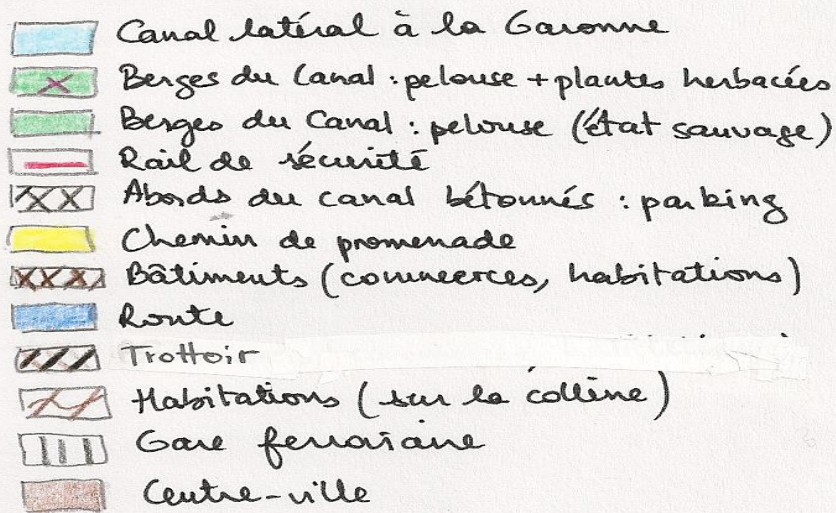 Canal latéral à la Garonne
Berges du Canal : pelouse + plantes herbacées
Berges du Canal : pelouse (état sauvage)
Rail de sécurité
Abords du canal bétonnés : parking
Chemin de promenade
Bâtiments (commerces, habitations)
Route
Trottoir
Habitations (sur la colline)
Gare ferroviaire
Centre-ville